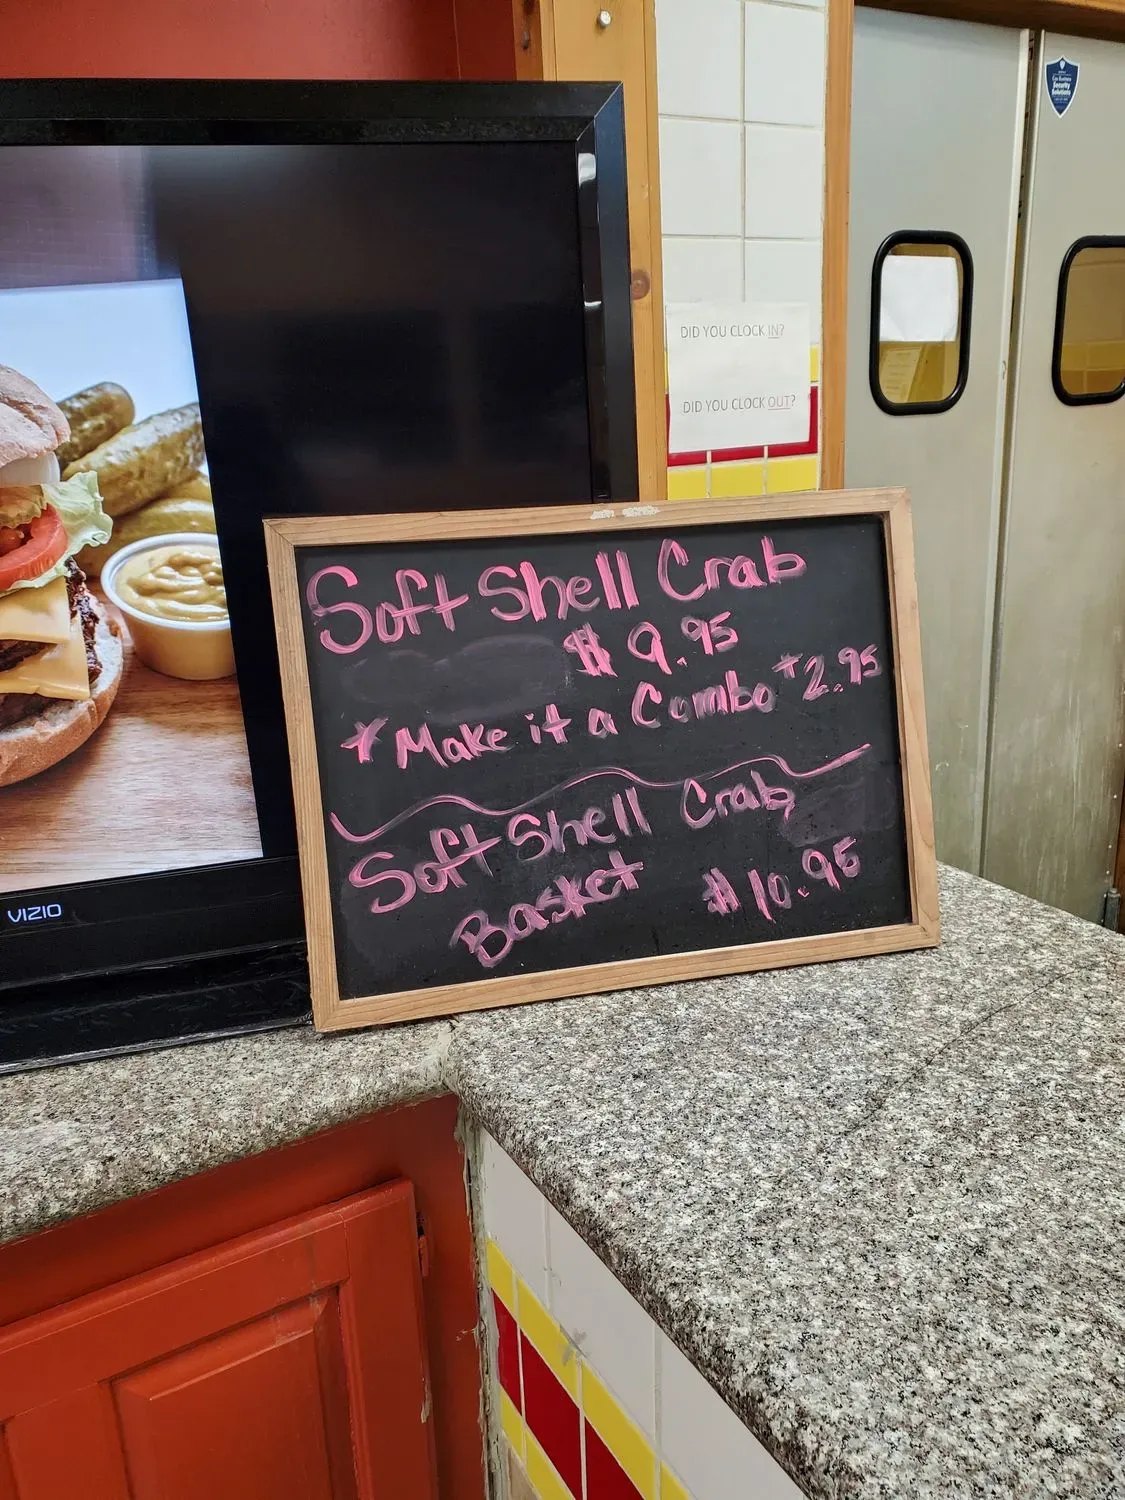 Security
Solutions
DID YOU CLOCK IN?
DID YOU CLOCK OUT?
Soft Shell Crab
$ 9.95
*Make it a Combo +2.95
Soft Shell Crab
Basket $10.95
VIZIO